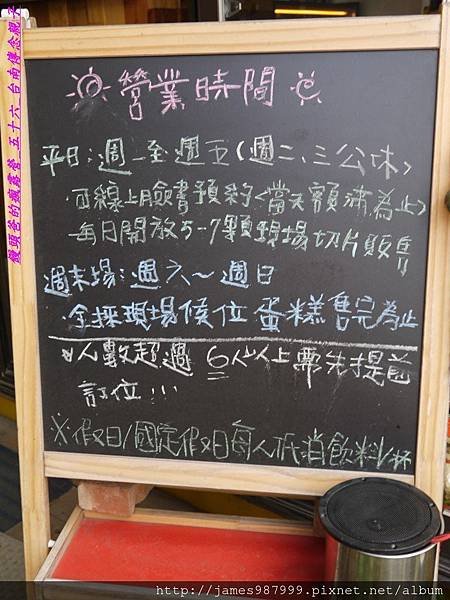 營業時間
平日：週一至週五（週二、三公休）
·可線上臉書預約<當天額滿為止>
－每日開放5-7顆現場切片販售
週末場：週六～週日
·全採現場候位 蛋糕售完為止
人數超過 6人以上需先提前
訂位!!!
※假日/國定假日每人低消飲料/杯
饅頭爸的瘋露營_五十六_台南傳念親子
http://james987999.pixnet.net/album